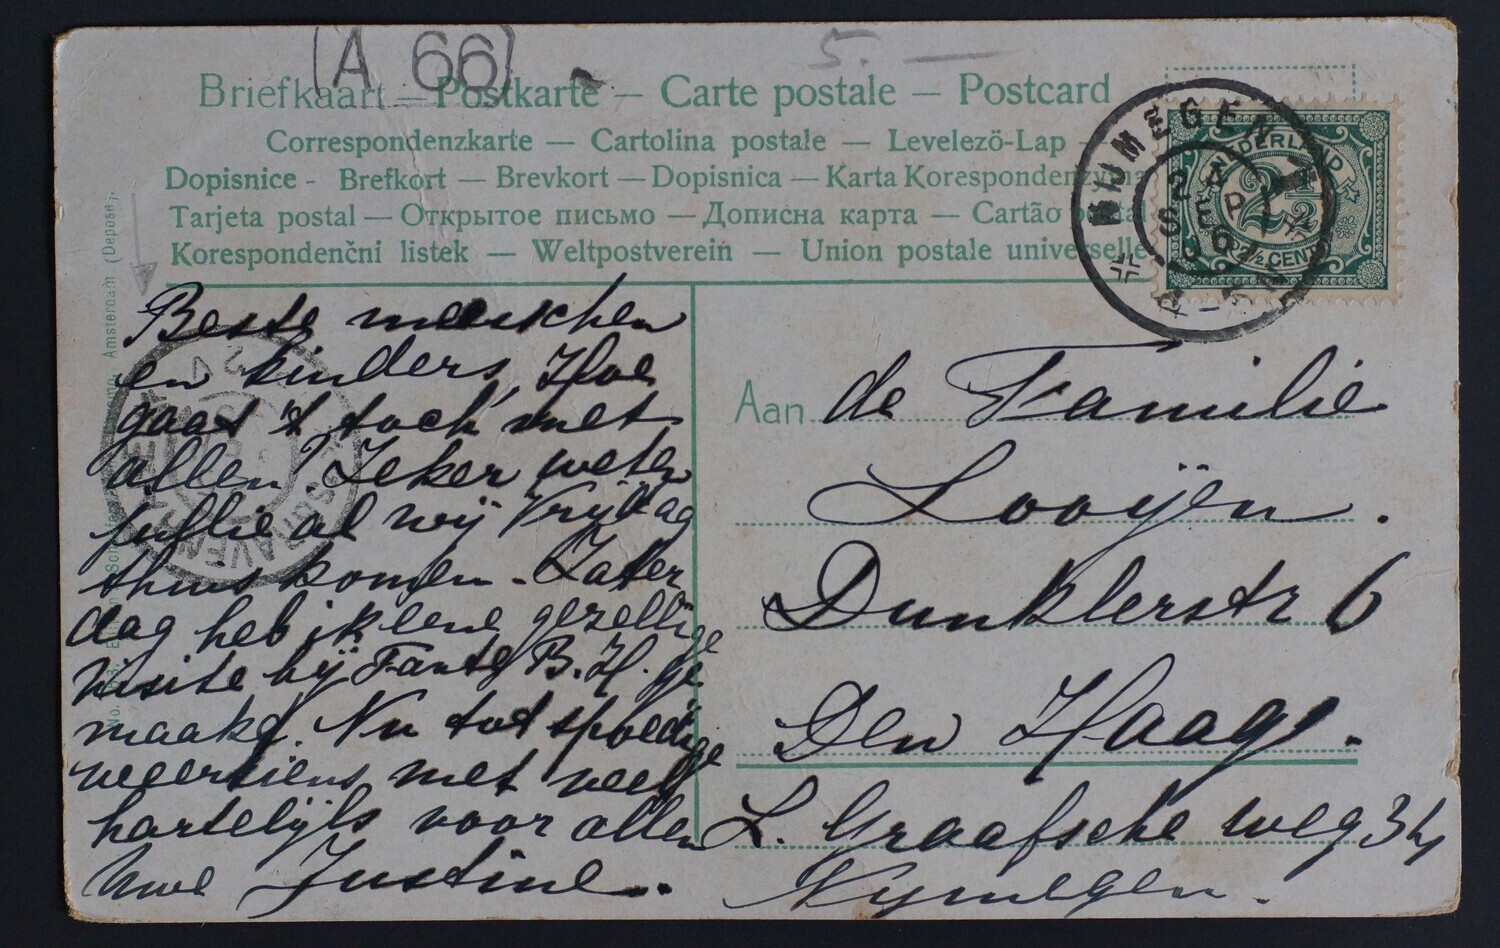 (A 66)
5. —
Briefkaart — Postkarte — Carte postale — Postcard
Correspondenzkarte — Cartolina postale — Levelező-Lap —
Dopisnice - Brefkort — Brevkort — Dopisnica — Karta Korespondenzyjna
Tarjeta postal — Открытое письмо — Дописна карта — Cartão postal
Korespondenčni listek — Weltpostverein — Union postale universelle
NIJMEGEN
NEDERLAND
2½
2½ CENT
Amsterdam (Deposé).
Beste menschen
en kinders, Hoe
gaat 't toch met
allen? Zeker weten
jullie al wij Vrijdag
thuis komen - Zater
dag heb ik eene gezellige
visite bij Tante B. H. ge
maakt. Nu tot spoedige
weerziens met veel
hartelijks voor allen
Uwe Justine.
Aan de Familie
Looijen.
Dunklerstr 6
Den Haag.
L. Graafsche weg 34
Nymegen.